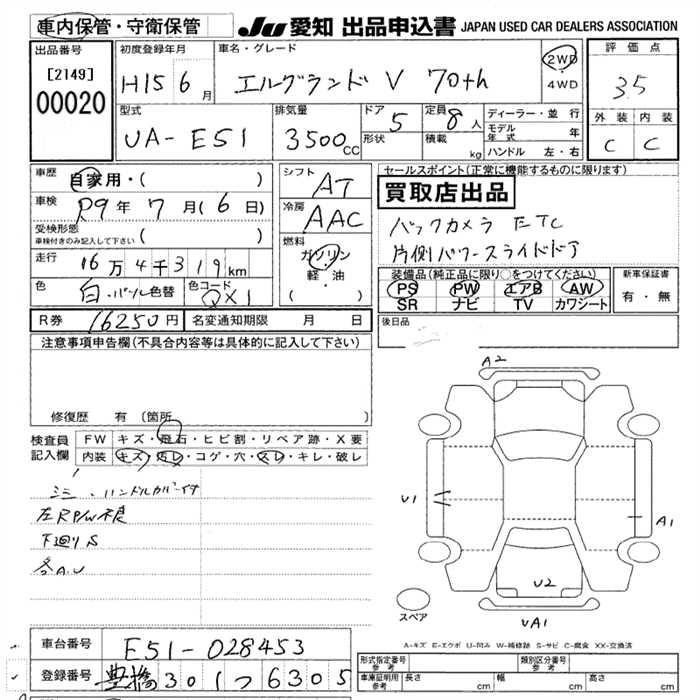 車内保管・守衛保管 JU 愛知 出品申込書 JAPAN USED CAR DEALERS ASSOCIATION
出品番号 [2149] 00020
初度登録年月 H15 6月
車名・グレード エルグランド V 70th
2WD・4WD
評価点 3.5
外装 C 内装 C
型式 UA-E51
排気量 3500cc
ドア 5 形状
定員 8人 積載 kg
ディーラー・並行
モデル年式 年
ハンドル 左・右
車歴 自家用・( )
車検 R9年 7月(6日)
受検形態 車検付きのみ記入して下さい ( )
走行 16万4千319km
色 白・パール色替 色コード QX1
シフト AT
冷房 AAC
燃料 ガソリン・軽・油 ( )
セールスポイント(正常に機能するものに限ります)
買取店出品
バックカメラ ETC
片側パワースライドドア
装備品(純正品に限り○をつけてください) 新車保証書
PS PW エアB AW 有・無
SR ナビ TV カワシート
R券 16250円 名変通知期限 月 日
後日品
注意事項申告欄(不具合内容等は具体的に記入して下さい)
修復歴 有(箇所
検査員記入欄 FW キズ・飛石・ヒビ割・リペア跡・X要
内装 キズ・汚レ・コゲ・穴・スレ・キレ・破レ
シミ・ハンドルカバーイタ
左RP/W不良
下廻りS
各A.U
A2
U1
A1
U2
UA1
スペア
A-キズ E-エクボ U-凹み W-補修跡 S-サビ C-腐食 XX-交換済
車台番号 E51-028453
登録番号 豊橋301つ6305
形式指定番号 参考 類別区分番号 参考
車庫証明用 参考 長さ cm 幅 cm 高さ cm